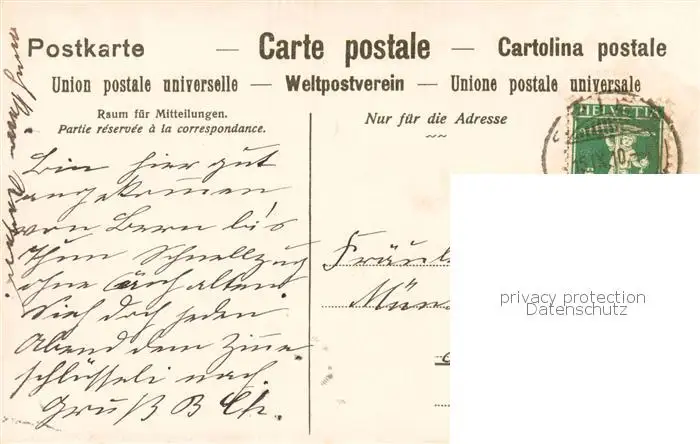 Postkarte — Carte postale — Cartolina postale
Union postale universelle — Weltpostverein — Unione postale universale
Raum für Mitteilungen.
Partie réservée à la correspondance.
Nur für die Adresse
HELVETIA
Bin hier gut
angekomen
von Bern bis
Thun Schnellzug
ohne Anhalten.
Sieh doch jeden
Abend dem
schlüsseli nach.
Gruß B Ch.
Fräul
Mün
privacy protection
Datenschutz